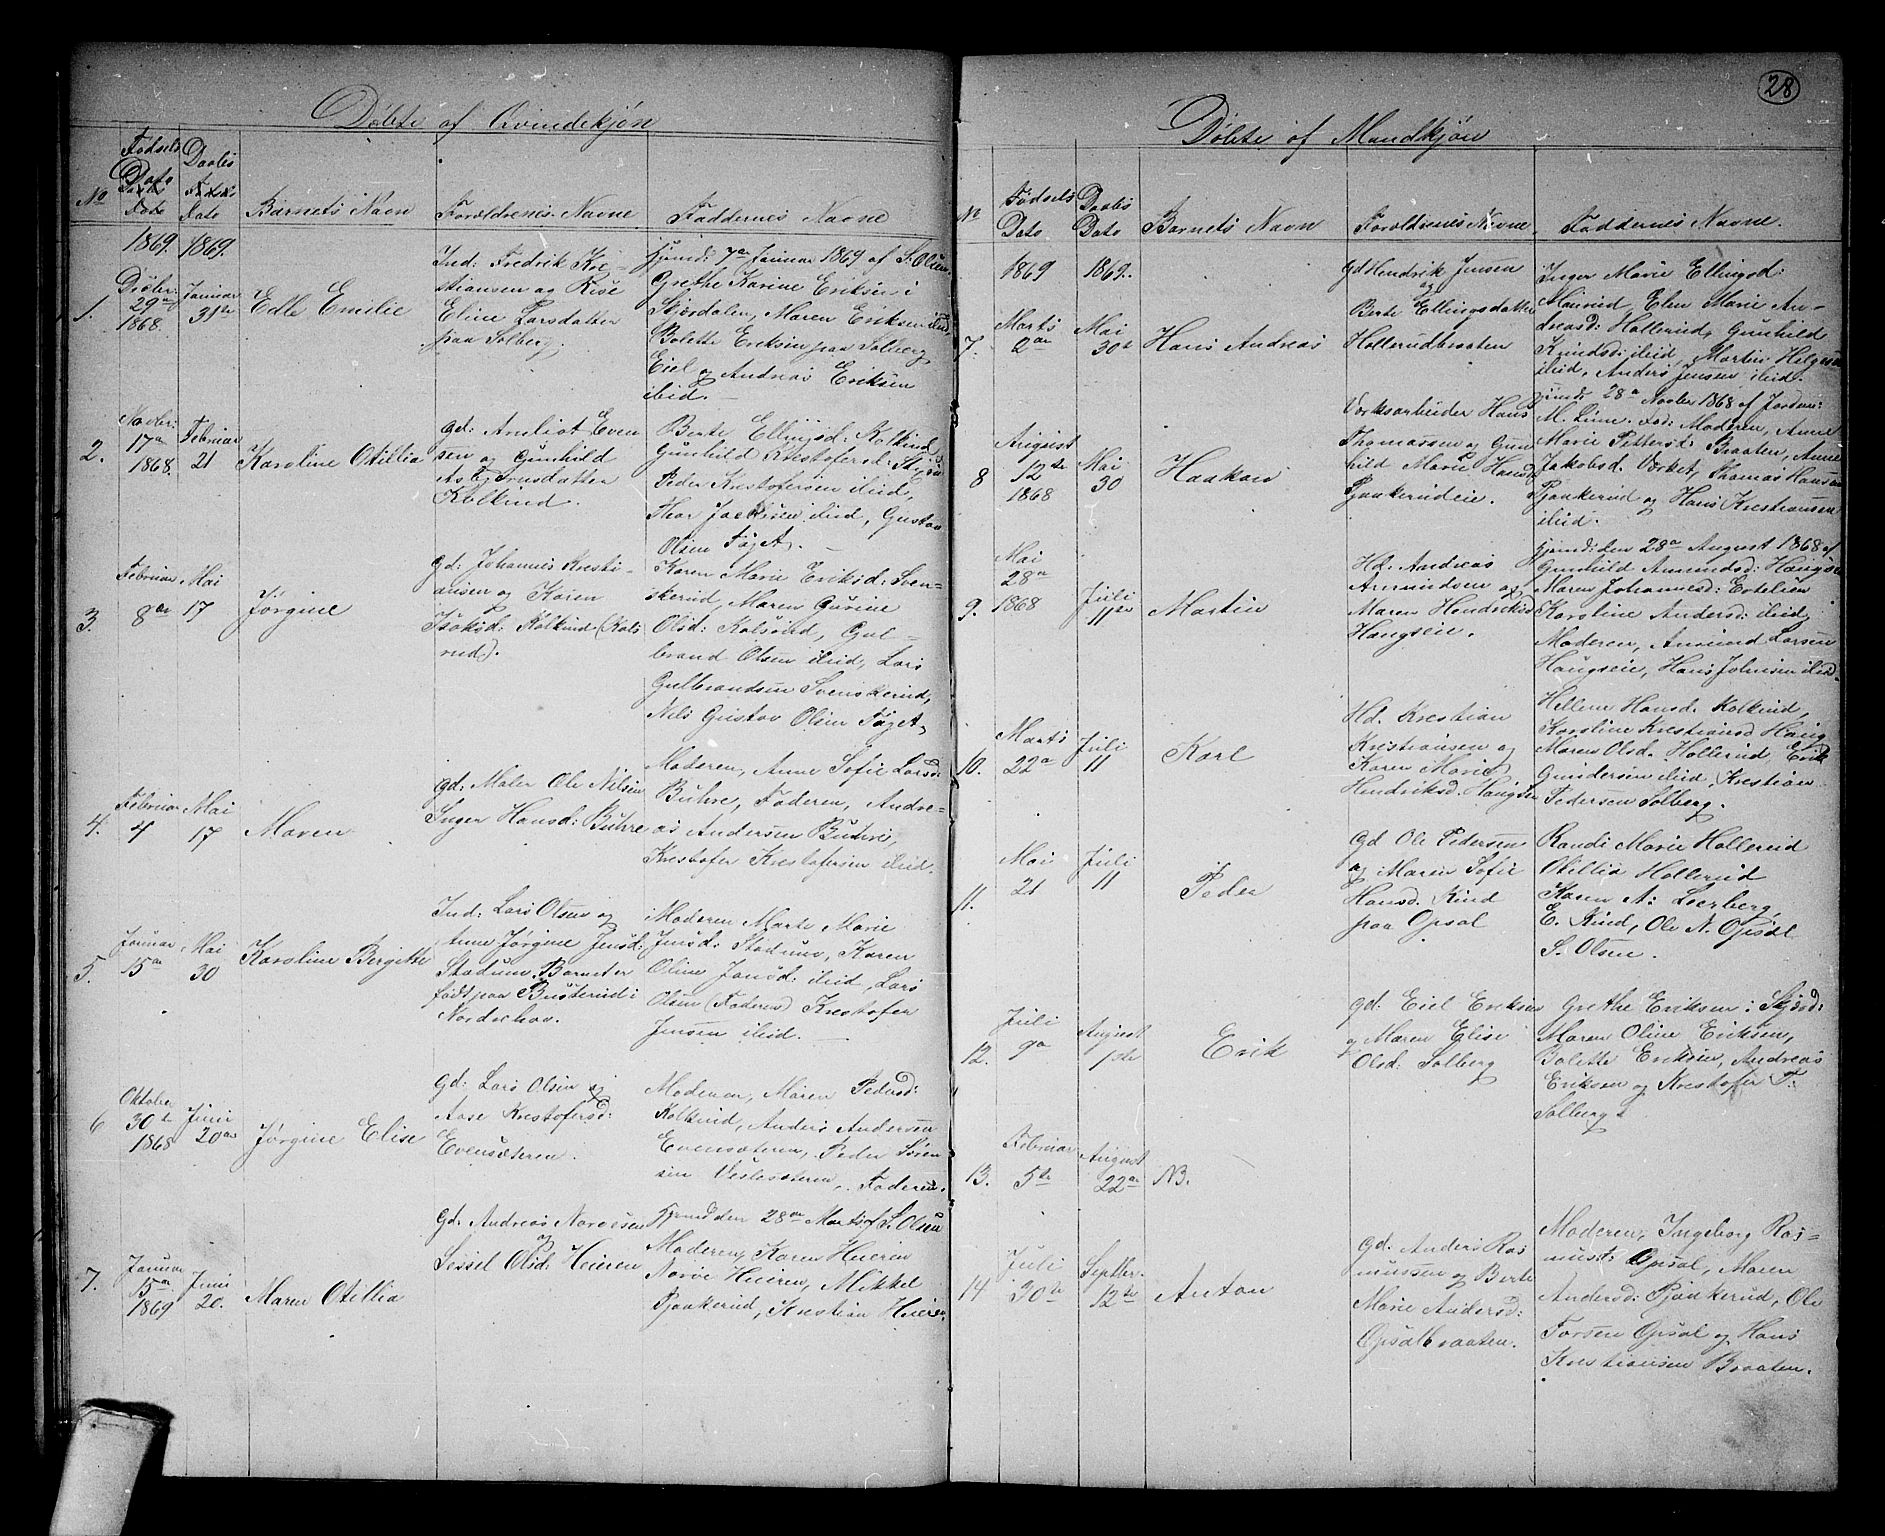 Døbte af Qvindekjøn
No
Fødsels Dato
Daabs Dato
Barnets Navn
Forældrenes Navne
Faddernes Navne
1869. 1869.
1.
Decbr: 29de 1868.
Januar 31te
Edle Emilie
Ind: Fredrik Kri-
stiansen og Kise
Eline Larsdatter
paa Solberg.
hjemd: 7de Januar 1869 af S. Olsen,
Grethe Karine Eriksen i
Skjørdalen, Maren Eriksen ibid,
Bolette Eriksen paa Solberg,
Eiel og Andreas Eriksen
ibid.
2.
Novbr: 17de 1868.
Februar 21
Karoline Otillia
gd: Anliot Even
sen og Gunhild
Asbjørnsdatter
Kolkind.
Berte Ellingsd: Kolkind
Gunhild Krestofersd:
Peder Krestofersen ibid,
Thor Jacobsen ibid, Gustav
Olsen Føget.
3.
Februar 8de
Mai 17
Jørgine
gd: Johannes Kresti-
ansen og Karen
Isaksd: Kolkind (Kols
rud).
Karen Marie Eriksd: Sven-
skerud, Maren Gurine
Olsd: Kolsrud, Gul-
brand Olsen ibid, Lars
Gulbrandsen Svenskerud,
Nils Gustav Olsen Føget.
4.
Februar 4
Mai 17
Maren
gd: Maler Ole Nilsen
Inger Hansd: Buhre
Moderen, Anne Sofie Larsd:
Buhre, Faderen, Andre-
as Andersen Buhre,
Krestofer Krestofersen ibid.
5.
Januar 15de
Mai 30
Karoline Bergitte
Ind: Lars Olsen og
Anne Jørgine Jensd:
Stadum. Barnet er
født paa Busterud i
Norderhov.
Moderen Marte Marie
Jensd: Stadum, Karen
Oline Jensd: ibid, Lars
Olsen (Faderen) Krestofer
Jensen ibid.
6
Oktober 30te 1868
Juni 20de
Jørgine Elise
gd: Lars Olsen og
Aase Krestofersd:
Evensæteren.
Moderen, Maren Pedersd:
Kolkind, Anders Andersen
Evensæteren, Peder Søren
sen Veslesæteren, Faderen.
7.
Januar 15de 1869
Juni 20.
Maren Otillia
gd: Andreas Narvesen
og
Sessel Olsd: Heieren
Hjemd den 28de Marts af S. Olsen
Moderen, Karen Heieren
Narve Heieren, Mikkel
Pjaakerud, Krestian Heieren.
28
Døbte af Mandkjøn
No
Fødsels Dato
Daabs Dato
Barnets Navn
Forældrenes Navne
Faddernes Navne.
1869 1869.
7.
Marts 2de
Mai 30te
Hans Andreas
gd Hendrik Jensen
og
Berte Ellingsdatter
Hollerudbraaten
Inger Marie Ellingsd:
Maurud, Elen Marie An-
dreasd: Hollerud, Gunhild
Knudsd: ibid, Martin Helgesen
ibid, Anders Jensen ibid.
8
August 12te 1868
Mai 30
Haakon
Værksarbeider Hans
Thomassen og Gun
hild Marie Hansd:
Pjaakerudeie.
hjemd: 28de Novbr 1868 af Jordm:
M. Lime. Fad: Moderen, Anne
Marie Pettersd: Braaten, Anne
Jakobsd. Værket, Thomas Hansen
Pjaakerud og Hans Krestiansen
ibid.
9.
Mai 28de 1868
Juli 11te
Martin
Hd. Andreas
Amundsen og
Maren Hendriksd
Haugseie.
hjemd: den 28de August 1868 af
Gunhild Amundsd: Haugseie
Maren Johannesd: Ertelien
Karoline Andersd: ibid,
Moderen, Amund Larsen
Haugseie, Hans Johnsen ibid.
10.
Marts 22de
Juli 11
Karl
Hd. Krestian
Kristiansen og
Karen Marie
Hendriksd. Haugsei
Hellene Hansd. Kolkind,
Karoline Krestiansd Haug,
Maren Olsd. Hollerud, Erik
Gundersen ibid, Krestian
Pedersen Solberg.
11.
Mai 21
Juli 11
Peder
gd Ole Pedersen
og Maren Sofie
Hansd. Rud
paa Opsal
Randi Marie Hollerud
Otillia Hollerud
Karen A. Leerberg,
E. Rud, Ole N. Opsal
S. Olsen.
12.
Juli 9de
August 1ste
Erik
gd: Eiel Eriksen
og Maren Elise
Olsd: Solberg
Grethe Eriksen i Skjørd:
Maren Oline Eriksen,
Bolette Eriksen, Andreas
Eriksen og Krestofer T.
Solberg.
13.
Februar 5te
August 22de
NB.
14
Juli 30te
Septbr. 12te
Anton
gd. Anders Ras
mussen og Berte
Marie Andersd:
Opsalbraaten.
Moderen, Ingeborg Ras-
musd: Opsal, Maren
Andersd: Pjaakerud, Ole
Torsen Opsal og Hans
Krestiansen Braaten.